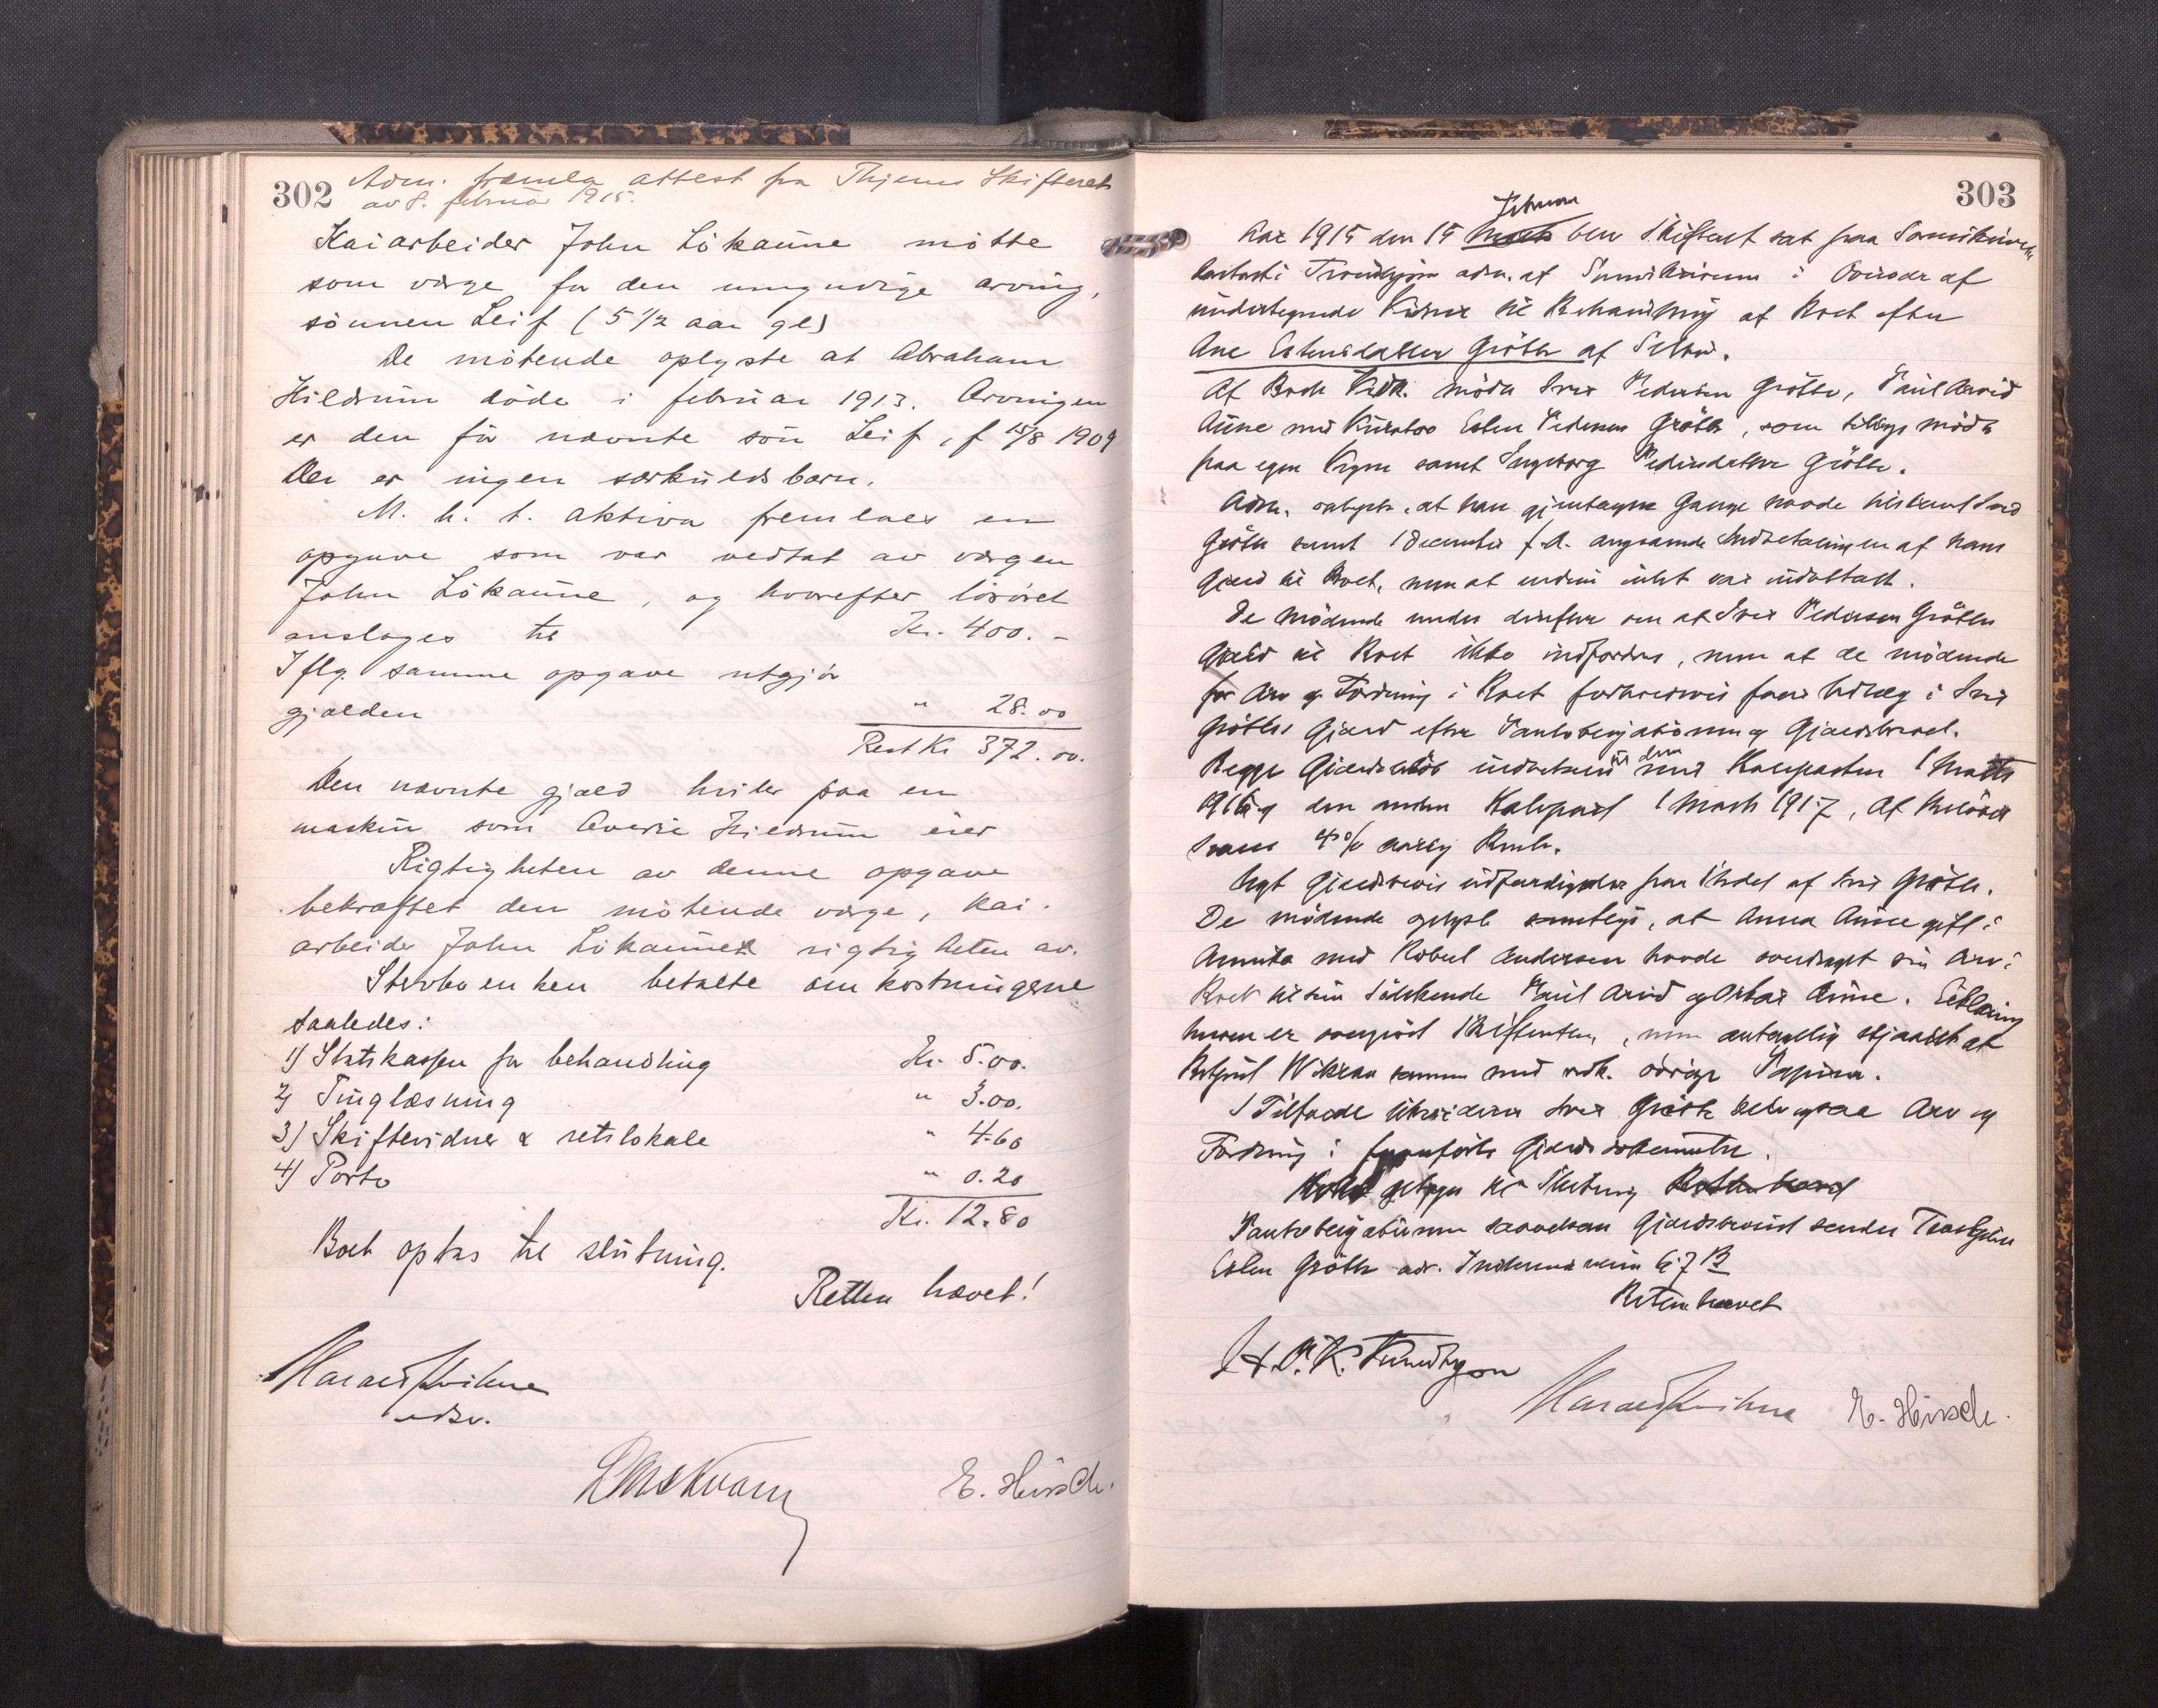 302
Adm. fremla attest fra Thjems Skifteret
av 8. februar 1915.
Kaiarbeider John Lökaune mötte
som værge for den umyndige arving,
sönnen Leif (5 1/2 aar gl)
De mötende oplyste at Abraham
Hildrum döde i februar 1913. Arvingen
er den før nævnte sön Leif, f 15/8 1909
Der er ingen særkuldsbarn.
M. h. t. aktiva fremlaes en
opgave som var vedtat av værgen
John Lökaune, og hvorefter lösöret
anslages til Kr. 400.-
Iflg. samme opgave utgjör
gjælden " 28.00
Rest Kr 372.00.
Den nævnte gjæld hviler paa en
maskin som Hildrum eier
Rigtigheten av denne opgave
bekræftet den mötende værge, kai-
arbeider John Lökaune rigtigheten av.
Stervboenken betalte omkostningerne
saaledes:
1) Statskassen for behandling Kr. 5.00.
2) Tinglæsning " 3.00.
3) Skiftevidner & retslokale " 4.60
4) Porto " 0.20
Kr. 12.80
Boet optas til slutning.
Retten hævet!
adv.
E. Hirsch.
303
Februar
Aar 1915 den 15 Marts blev Skifteret sat paa Sorenskriver
kontoret i Trondhjem adm. af Sorenskriveren i Overvær af
undertegnede Vidner til Behandling af Boet efter
Ane Estensdatter Grötte af Selbu.
Af Boets Vedk. mödte Iver Pedersen Grötte, Paul Arvid
Aune med Kurator Esten Pedersen Grötte, som tillige mödte
paa egne Vegne samt Ingeborg Pedersdatter Grötte.
Adm. oplyste, at han gjentagne Gange havde tilskrevet Iver
Grötte samt 1 December f.A. angaaende Indbetalingen af hans
Gjæld til Boet, men at endnu intet var indbetalt.
De mödende enedes derefter om at Iver Pedersen Gröttes
Gjæld til Boet ikke indfordres, men at de mödende
for Arv og Fordring i Boet forholdsvis faar Udlæg i Iver
Gröttes Gjæld efter Panteobligationen og Gjældsbrevet.
til den
Begge Gjældsbeløb indbetales med Halvparten 1 Marts
1916 og den anden Halvpart 1 Marts 1917, Af Belöbet
svares 4% aarlig Rente.
Nyt Gjældsbrevis udfærdiges paa Skadel af Iver Grötte.
De mödende oplyste samtlige, at Anna Aune gift i
Amerika med Robert Andersen havde overdraget sin Arv i
Boet til sine Söskende Paul Arvid og Oskar Aune. Erklæring
herom er overgivet Skifteretten, men antagelig
samme med vedk. övrige Papirer.
I Tilfælde likviderer Iver Grötte selv ogsaa Arv og
Fordring i fornævnte Gjældsdokumenter.
Boet optages til Slutning Retten hævet
Panteobligationen saavelsom Gjældsbrevet sendes
Esten Grötte adr.
Retten hævet
E. Hirsch.